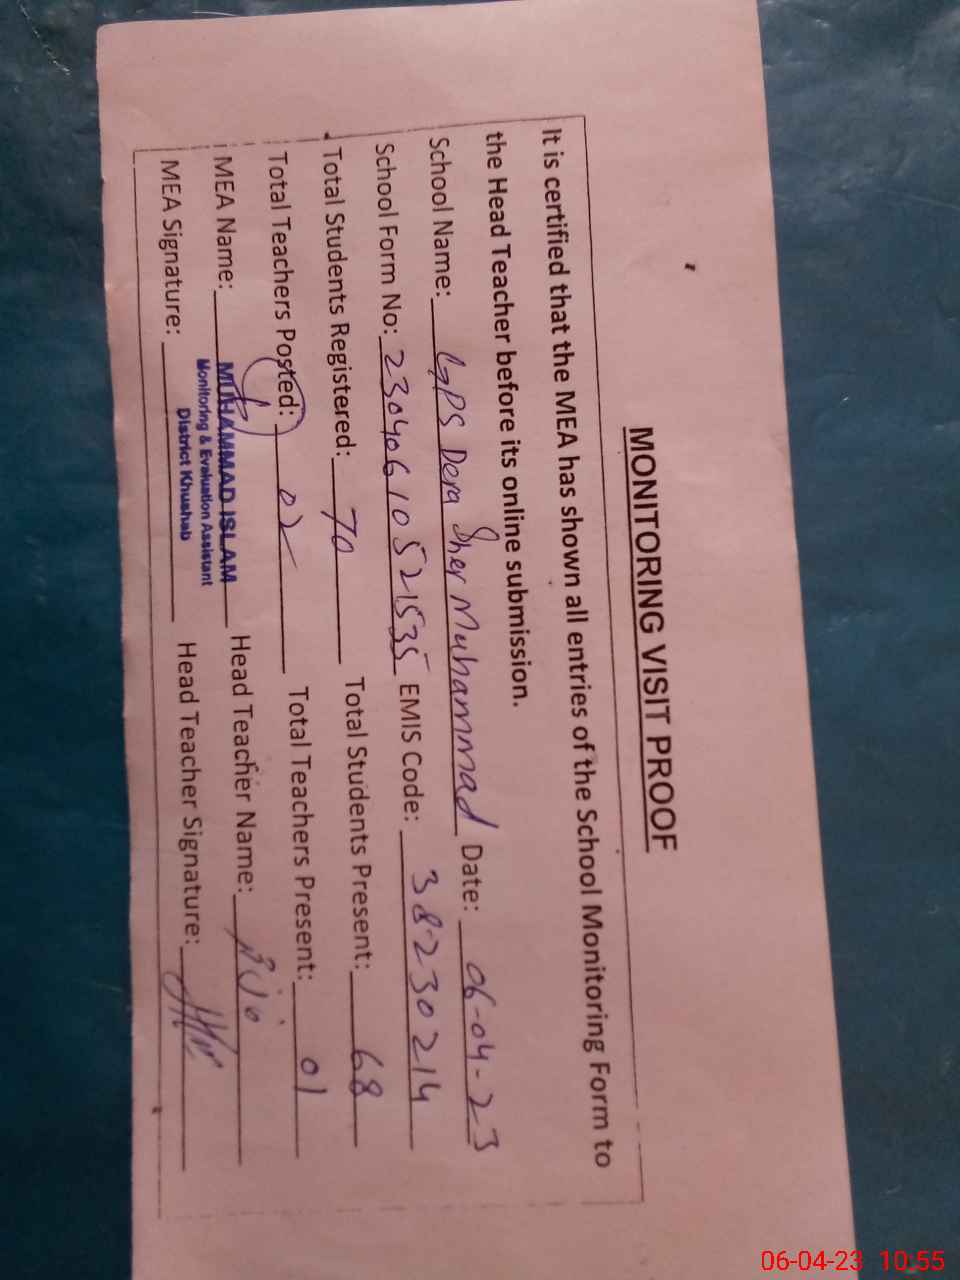 MONITORING VISIT PROOF
It is certified that the MEA has shown all entries of the School Monitoring Form to
the Head Teacher before its online submission.
School Name: GPS Dera Sher Muhammad Date: 06-04-23
School Form No: 23040610521535 EMIS Code: 38230214
Total Students Registered: 70 Total Students Present: 68
Total Teachers Posted: 02 Total Teachers Present: 01
MEA Name: MUHAMMAD ISLAM Head Teacher Name:
Monitoring & Evaluation Assistant
District Khushab
MEA Signature: Head Teacher Signature:
06-04-23 10:55